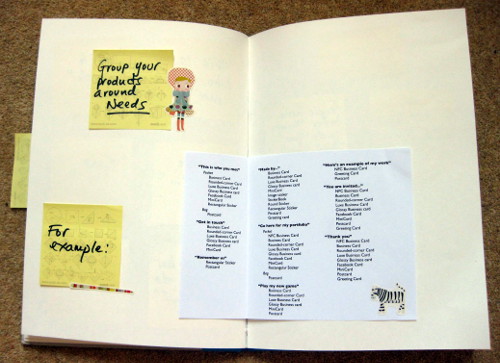 Group your
products
around
Needs
For
example:
"This is who you met"
Pocket
Business Card
Rounded-corner Card
Luxe Business Card
Glossy Business Card
Facebook Card
MiniCard
Rectangular Sticker
Postcard
"Get in touch"
Business Card
Rounded-corner Card
Luxe Business Card
Glossy Business Card
Facebook Card
MiniCard
"Remember us"
Rectangular Sticker
Postcard
"Made by..."
Business Card
Rounded-corner Card
Luxe Business Card
Glossy Business card
StickerBook
Round Sticker
MiniCard
Rectangular Sticker
Postcard
Greeting card
"Go here for my portfolio"
Pocket
NFC Business Card
Business Card
Rounded-corner Card
Luxe Business Card
Glossy Business Card
Facebook Card
MiniCard
Rectangular Sticker
Bag
Postcard
"Play my new game"
Business Card
Rounded-corner Card
Luxe Business Card
Glossy Business Card
Facebook Card
MiniCard
"Here's an example of my work"
NFC Business Card
Greeting Card
Postcard
"You are invited..."
NFC Business Card
Business Card
Rounded-corner Card
Luxe Business Card
Glossy Business Card
Facebook Card
MiniCard
Postcard
Greeting Card
"Thank you"
NFC Business Card
Business Card
Rounded-corner Card
Luxe Business Card
Glossy Business Card
Facebook Card
MiniCard
Postcard
Greeting Card